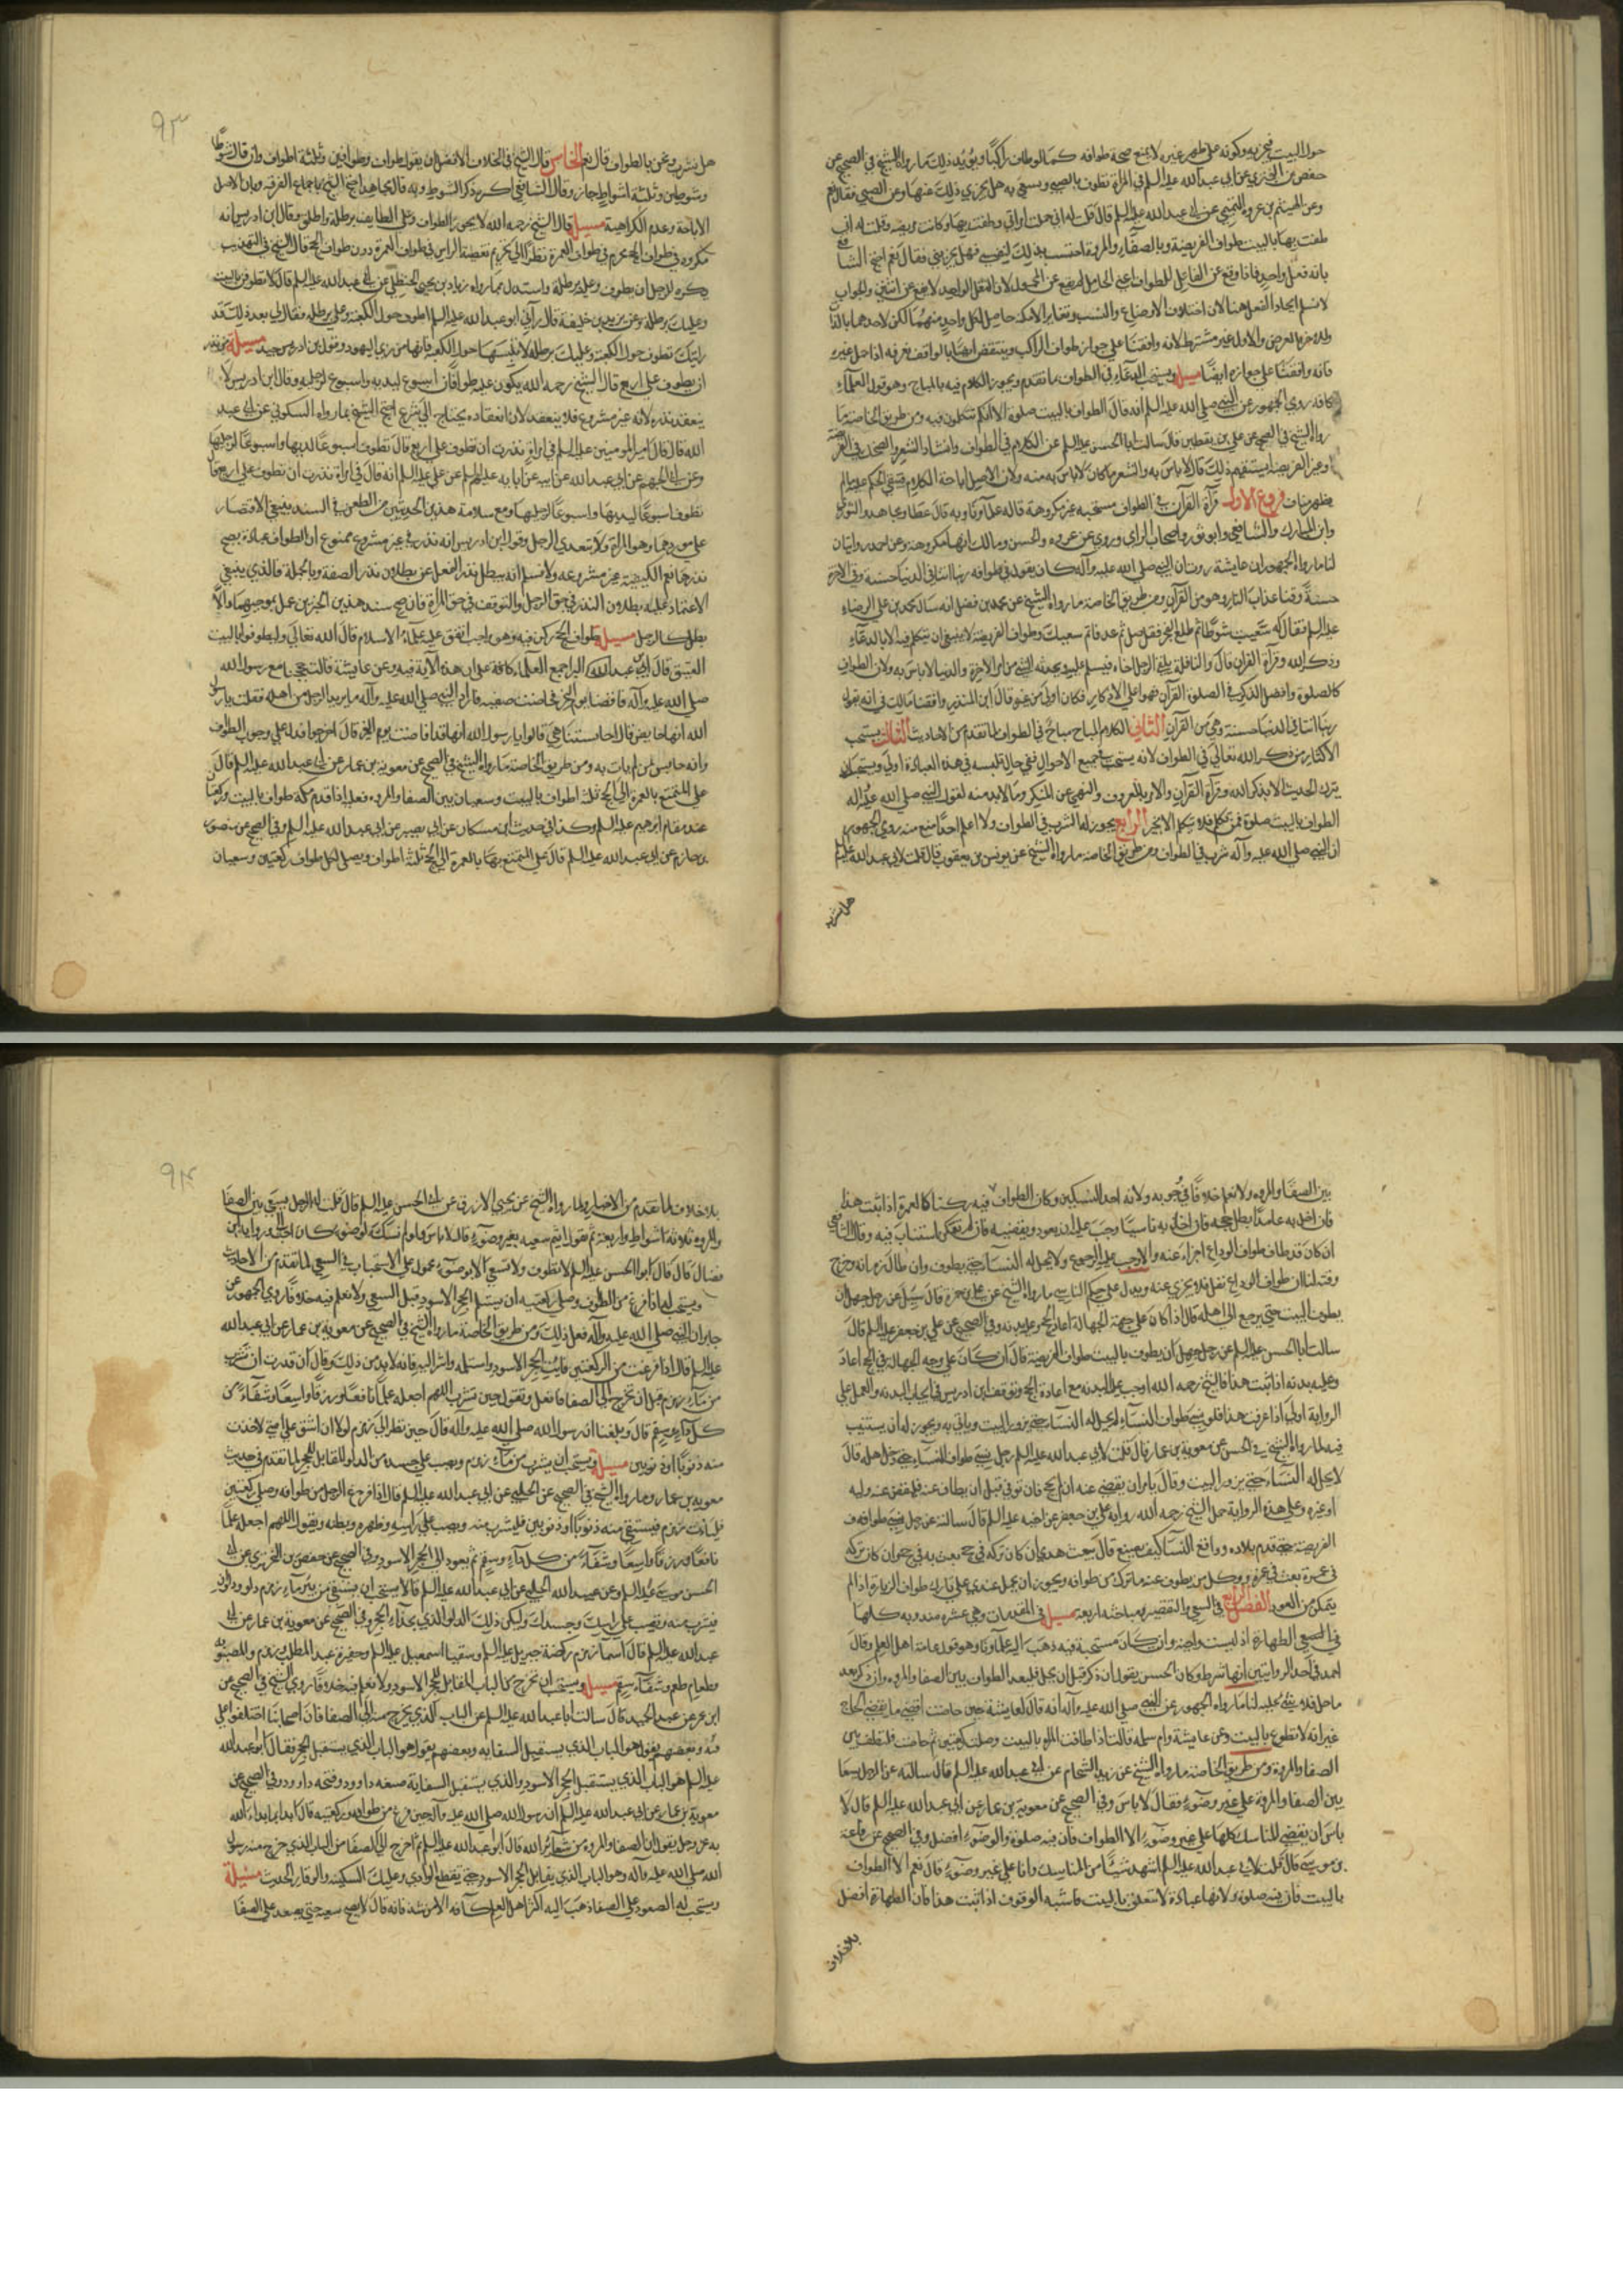 حول البيت فيجزيه وكونه على ظهر غيره لا يمنع صحة طوافه كما لو طاف راكبا ويؤيد ذلك ما رواه الشيخ في الصحيح عن
حفص بن البختري عن ابي عبد الله عليه السلم في المراة تطوف بالصبي وتسعى به هل يجزي ذلك عنها وعن الصبي فقال نعم
وعن الهيثم بن عروة التميمي عن ابي عبد الله عليه السلم قال قلت له اني حملت امراتي وطفت بها وكانت مريضة وقلت له اني
طفت بها بالبيت طواف الفريضة وبالصفا والمروة احتسب بذلك لنفسي فهل يجزيني فقال نعم احتج الشافعي
بانه فعل واحد فاذا وقع عن الفاعل للطواف اعني الحامل لم يقع عن المحمول لان الفعل الواحد لا يقع عن اثنين والجواب
لا نسلم اتحاد الفعل هنا لان اختلاف الاوضاع والنسب وتغاير الامكنة حاصل لكل واحد منهما لكن لاحدهما بالذات
وللاخر بالعرض والاول غير مشترط لانه وافقنا على جواز طواف الراكب وينتقض ايضا بالواقف بعرفة اذا حمل غيره
فانه وافقنا على جوازه ايضا مسئلة ويستحب الدعاء في الطواف بما تقدم ويجوز الكلام فيه بالمباح وهو قول العلماء
كافة روى الجمهور عن النبي صلى الله عليه السلم انه قال الطواف بالبيت صلوة الا انكم تتكلمون فيه ومن طريق الخاصة ما
رواه الشيخ في الصحيح عن علي بن يقطين قال سالت ابا الحسن عليه السلم عن الكلام في الطواف وانشاد الشعر والضحك في الفريضة
او غير الفريضة ايستقيم ذلك قال لا باس به والشعر ما كان لا باس به منه ولان الاصل اباحة الكلام فيبقى الحكم عليه ما لم
يظهر مناف فروع الاول قراة القران في الطواف مستحبة غير مكروهة قاله علماونا وبه قال عطا ومجاهد والثوري
وابن المبارك والشافعي وابو ثور واصحاب الراي وروي عن عروة والحسن ومالك انها مكروهة وعن احمد روايتان
لنا ما رواه الجمهور ان عايشة روت ان النبي صلى الله عليه وآله كان يقول في طوافه ربنا اتنا في الدنيا حسنة وفي الاخرة
حسنة وقنا عذاب النار وهو من القران ومن طريق الخاصة ما رواه الشيخ عن محمد بن فضيل انه سال محمد بن علي الرضا
عليه السلم فقال له سعيت شوطا ثم طلع الفجر فقال صل ثم عد فاتم سعيك وطواف الفريضة لا ينبغي ان يتكلم فيه الا بالدعاء
وذكر الله وقراة القران قال والنافلة يلقى الرجل اخاه فيسلم عليه ويحدثه الشئ من امر الاخرة والدنيا لا باس به ولان الطواف
كالصلوة وافضل الذكر في الصلوة القران فهو اعلى الاذكار فكان اولى من غيره قال ابن المنذر وافقنا مالك في انه يقول
ربنا اتنا في الدنيا حسنة وهي من القران الثاني الكلام المباح مباح في الطواف لما تقدم من الاحاديث الثالث يستحب
الاكثار من ذكر الله تعالى في الطواف لانه يستحب في جميع الاحوال ففي حال تلبسه في هذه العبادة اولى ويستحب ان
يترك الحديث الا بذكر الله وقراة القران والامر بالمعروف والنهي عن المنكر وما لا بد منه لقول النبي صلى الله عليه وآله
الطواف بالبيت صلوة فمن تكلم فلا يتكلم الا بخير الرابع يجوز له الشرب في الطواف ولا اعلم احدا منع منه روى الجمهور
ان النبي صلى الله عليه وآله شرب في الطواف ومن طريق الخاصة ما رواه الشيخ عن يونس بن يعقوب قال قلت لابي عبد الله عليه السلم
هل نشرب
٩٣
هل نشرب ونحن بالطواف قال نعم الخامس قال الشيخ في الخلاف الافضل ان يقول طواف وطوافين وثلثة اطواف وان قال شوطا
وشوطين وثلثة اشواط جاز وقال الشافعي اكره ذكر الشوط وبه قال مجاهد احتج الشيخ باجماع الفرقة وبان الاصل
الاباحة وعدم الكراهية مسئلة قال الشيخ رحمه الله لا يجوز الطواف وعلى الطايف برطلة واطلق وقال ابن ادريس انه
مكروه في طواف الحج محرم في طواف العمرة نظرا الى تحريم تغطية الراس في طواف العمرة دون طواف الحج قال الشيخ في التهذيب
يكره للرجل ان يطوف وعليه برطلة واستدل بما رواه زياد بن يحيى الحنظلي عن ابي عبد الله عليه السلم قال لا تطوفن بالبيت
وعليك برطلة وعن يزيد بن خليفة قال رآني ابو عبد الله عليه السلم اطوف حول الكعبة وعلي برطلة فقال لي بعد ذلك قد
رايتك تطوف حول الكعبة وعليك برطلة لا تلبسها حول الكعبة فانها من زي اليهود وقول ابن ادريس جيد مسئلة من نذر
ان يطوف على اربع قال الشيخ رحمه الله يكون عليه طوافان اسبوع ليديه واسبوع لرجليه وقال ابن ادريس لا
ينعقد نذره لانه غير مشروع فلا ينعقد لان انعقاده يحتاج الى شرع احتج الشيخ بما رواه السكوني عن ابي عبد
الله قال قال امير المومنين عليه السلم في امراة نذرت ان تطوف على اربع قال تطوف اسبوعا ليديها واسبوعا لرجليها
وعن ابي الجهم عن ابي عبد الله عن ابيه عن ابايه عليهم السلم عن علي عليه السلم انه قال في امراة نذرت ان تطوف على اربع قال
تطوف اسبوعا ليديها واسبوعا لرجليها ومع سلامة هذين الحديثين من الطعن في السند ينبغي الاقتصار
على موردهما وهو المراة ولا يتعدى الرجل وقول ابن ادريس انه نذر في غير مشروع ممنوع اذ الطواف عبادة يصح
نذرها نعم الكيفية غير مشروعه ولا نسلم انه يبطل نذر الفعل عن بطلان نذر الصفة وبالجملة فالذي ينبغي
الاعتماد عليه بطلان النذر في حق الرجل والتوقف في حق المراة فان صح سند هذين الخبرين عمل بموجبهما والا
بطل كالرجل مسئلة طواف الحج ركن فيه وهو واجب اتفق عليه علماء الاسلام قال الله تعالى وليطوفوا بالبيت
العتيق قال ابن عبد البر اجمع العلماء كافة على ان هذه الآية فيه وعن عايشة قالت حججنا مع رسول الله
صلى الله عليه وآله فافضنا يوم النحر فحاضت صفية فاراد النبي صلى الله عليه وآله ما يريد الرجل من اهله فقلت يا رسول
الله انها حايض قال احابستنا هي قالوا يا رسول الله انها قد افاضت يوم النحر قال اخرجوا فدل على وجوب الطواف
وانه حابس لمن لم يات به ومن طريق الخاصة ما رواه الشيخ في الصحيح عن معوية بن عمار عن ابي عبد الله عليه السلم قال
على المتمتع بالعمرة الى الحج ثلثة اطواف بالبيت وسعيان بين الصفا والمروه فعليه اذا قدم مكة طواف بالبيت وركعتان
عند مقام ابرهيم عليه السلم وكذا في حديث ابن مسكان عن ابي بصير عن ابي عبد الله عليه السلم وفي الصحيح عن منصور
بن حازم عن ابي عبد الله عليه السلم قال على المتمتع بالعمرة الى الحج ثلثة اطواف ويصلي لكل طواف ركعتين وسعيان
بين الصفا والمروه ولا نعلم خلافا في وجوبه ولانه احد النسكين وكان الطواف فيه ركنا كالعمرة اذا ثبت هذا
فان اخل به عامدا بطل حجه فان اخل به ناسيا وجب عليه ان يعود ويقضيه فان لم يتمكن استناب فيه وقال الشافعي
ان كان قد طاف طواف الوداع اجزاه عنه والا وجب عليه الرجوع ولا يحل له النساء حتى يطوف وان طال زمانه وخرج
وقته لنا ان طواف الوداع نفل فلا يجزي عنه ويدل على حكم الناسي ما رواه الشيخ عن علي بن حمزة قال سئل عن رجل جهل ان
يطوف بالبيت حتى يرجع الى اهله قال اذا كان على جهة الجهالة اعاد الحج وعليه بدنه وفي الصحيح عن علي بن جعفر عليه السلم قال
سالت ابا الحسن عليه السلم عن رجل جهل ان يطوف بالبيت طواف الفريضة قال ان كان على وجه الجهالة في الحج اعاد
وعليه بدنه اذا ثبت هذا فالشيخ رحمه الله اوجب عليه البدنه مع اعادة الحج وتوقف ابن ادريس في ايجاب البدنه والعمل على
الرواية اولى اذا عرفت هذا فلو نسي طواف النساء لم يحل له النساء حتى يزور البيت وياتي به ويجوز له ان يستنيب
فيه لما رواه الشيخ في الحسن عن معوية بن عمار قال قلت لابي عبد الله عليه السلم رجل نسي طواف النساء حتى دخل اهله قال
لا يحل له النساء حتى يزور البيت وقال يامر ان يقضى عنه ان لم يحج فان توفي قبل ان يطاف عنه فليقض عنه وليه
او غيره وعلى هذه الرواية حمل الشيخ رحمه الله رواية علي بن جعفر عن اخيه عليه السلم قال سالته عن رجل نسي طواف
الفريضة حتى قدم بلاده وواقع النساء كيف يصنع قال يبعث بهدي ان كان تركه في حج بعث به في حج وان كان تركه
في عمرة بعث في عمرة ووكل من يطوف عنه ما ترك من طوافه ويجوز ان يحمل عندي على تارك طواف الزيارة اذا لم
يتمكن من العود الفصل الرابع في السعي والتقصير ومباحثه اربعة مسئلة في المقدمات وهي عشره مندوبه كلها
في السعي الطهارة اذ ليست واجبة وان كانت مستحبة فيه ذهب اليه علماونا وهو قول عامة اهل العلم وقال
احمد في احد الروايتين انها شرط وكان الحسن يقول ان ذكر قبل ان يحل فليعد الطواف بين الصفا والمروه وان ذكر بعد
ما حل فلا شئ عليه لنا ما رواه الجمهور عن النبي صلى الله عليه وآله انه قال لعايشة حين حاضت اقضي ما يقضي الحاج
غير انه لا تطوفي بالبيت وعن عايشة وام سلمه قالتا اذا طافت المراة بالبيت وصلت ركعتين ثم حاضت فلتطف بين
الصفا والمروة ومن طريق الخاصة ما رواه الشيخ عن زيد الشحام عن ابي عبد الله عليه السلم قال سالته عن الرجل يسعى
بين الصفا والمروة على غير وضوء فقال لا باس وفي الصحيح عن معوية بن عمار عن ابي عبد الله عليه السلم قال لا
باس ان يقضي المناسك كلها على غير وضوء الا الطواف فان فيه صلوة والوضوء افضل وفي الصحيح عن رفاعة
بن موسى قال قلت لابي عبد الله عليه السلم اشهد شيئا من المناسك وانا على غير وضوء قال نعم الا الطواف
بالبيت فان فيه صلوة ولانها عبادة لا تتعلق بالبيت فاشبه الوقوف اذا ثبت هذا فان الطهارة افضل
بلا خلاف
٩٤
بلا خلاف لما تقدم من الاخبار ولما رواه الشيخ عن يحيى الازرق عن ابي الحسن عليه السلم قال قلت له الرجل يسعى بين الصفا
والمروه ثلاثة اشواط او اربعة ثم يبول ايتم سعيه بغير وضوء قال لا باس ولو اتم نسكه بوضوء كان احب الي ورواية ابن
فضال قال قال ابو الحسن عليه السلم لا تطوف ولا تسعى الا بوضوء محمول على الاستحباب في السعي لما تقدم من الاحاديث
ويستحب له اذا فرغ من الطواف وصلى ركعتيه ان يستلم الحجر الاسود قبل السعي ولا نعلم فيه خلافا روى الجمهور عن
جابر ان النبي صلى الله عليه وآله فعل ذلك ومن طريق الخاصة ما رواه الشيخ في الصحيح عن معوية بن عمار عن ابي عبد الله
عليه السلم قال اذا فرغت من الركعتين فايت الحجر الاسود واستلمه واشر اليه فانه لا بد من ذلك وقال ان قدرت ان تشرب
من ماء زمزم قبل ان تخرج الى الصفا فافعل وتقول حين تشرب اللهم اجعله علما نافعا ورزقا واسعا وشفاء من
كل داء وسقم قال وبلغنا ان رسول الله صلى الله عليه وآله قال حين نظر الى زمزم لولا ان اشق على امتي لاخذت
منه ذنوبا او ذنوبين مسئلة ويستحب ان يشرب من ماء زمزم ويصب على جسده من الدلو المقابل للحجر لما تقدم في حديث
معوية بن عمار وما رواه الشيخ في الصحيح عن الحلبي عن ابي عبد الله عليه السلم قال اذا فرغ الرجل من طوافه وصلى ركعتين
فليات زمزم فيستقي منه ذنوبا او ذنوبين فليشرب منه ويصب على راسه وظهره وبطنه ويقول اللهم اجعله علما
نافعا ورزقا واسعا وشفاء من كل داء وسقم ثم يعود الى الحجر الاسود وفي الصحيح عن حفص بن البختري عن ابي
الحسن موسى عليه السلم وعن عبيد الله الحلبي عن ابي عبد الله عليه السلم قالا يستحب ان يستقي من بئر ماء زمزم دلوا ودلوين
فيشرب منه ويصب على راسك وجسدك وليكن ذلك الدلو الذي بحذاء الحجر وفي الصحيح عن معوية بن عمار عن ابي
عبد الله عليه السلم قال اسماء زمزم ركضة جبريل عليه السلم وسقيا اسمعيل عليه السلم وحفيرة عبد المطلب وزمزم والمضنونه
وطعام طعم وشفاء سقم مسئلة ويستحب ان يخرج من الباب المقابل للحجر الاسود ولا نعلم فيه خلافا روى الشيخ في الصحيح عن
عن عبد الحميد قال سالت ابا عبد الله عليه السلم عن الباب الذي يخرج منه الى الصفا فان اصحابنا اختلفوا علي
فيه وبعضهم يقول هو الباب الذي يستقبل السقاية وبعضهم يقول هو الباب الذي يستقبل الحجر فقال ابو عبد الله
عليه السلم هو الباب الذي يستقبل الحجر الاسود والذي يستقبل السقاية صنعه داوود وفتحه داوود وفي الصحيح عن
معوية بن عمار عن ابي عبد الله عليه السلم ان رسول الله صلى الله عليه وآله حين فرغ من طوافه وركعتيه قال ابدا بما بدا الله
به عز وجل يقول ان الصفا والمروه من شعائر الله قال ابو عبد الله عليه السلم ثم اخرج الى الصفا من الباب الذي خرج منه رسول
الله صلى الله عليه وآله وهو الباب الذي يقابل الحجر الاسود حتى يقطع الوادي وعليك السكينه والوقار الحديث مسئلة
ويستحب له الصعود على الصفا ذهب اليه اكثر اهل العلم كافة الا من شذ فانه قال لا يصح سعيه حتى يصعد على الصفا